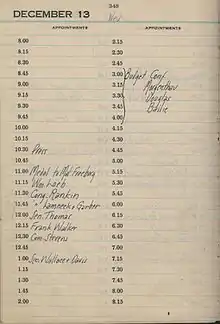 348
DECEMBER 13
Wed
APPOINTMENTS
APPOINTMENTS
8.00
8.15
8.30
8.45
9.00
9.15
9.30
9.45
10.00
10.15
10.30 Press
10.45
11.00 Medal to Mr
11.15 Wm Loeb
11.30 Cong. Rankin
11.45 " Lamneck + Garber
12.00 Sen. Thomas
12.15 Frank Walker
12.30 Com Stevens
12.45
1.00 Sec Wallace + Davis
1.15
1.30
1.45
2.00
2.15
2.30
2.45
3.00 Budget Conf
3.15
3.30 Douglas
3.45
4.00
4.15
4.30
4.45
5.00
5.15
5.30
5.45
6.00
6.15
6.30
6.45
7.00
7.15
7.30
7.45
8.00
8.15